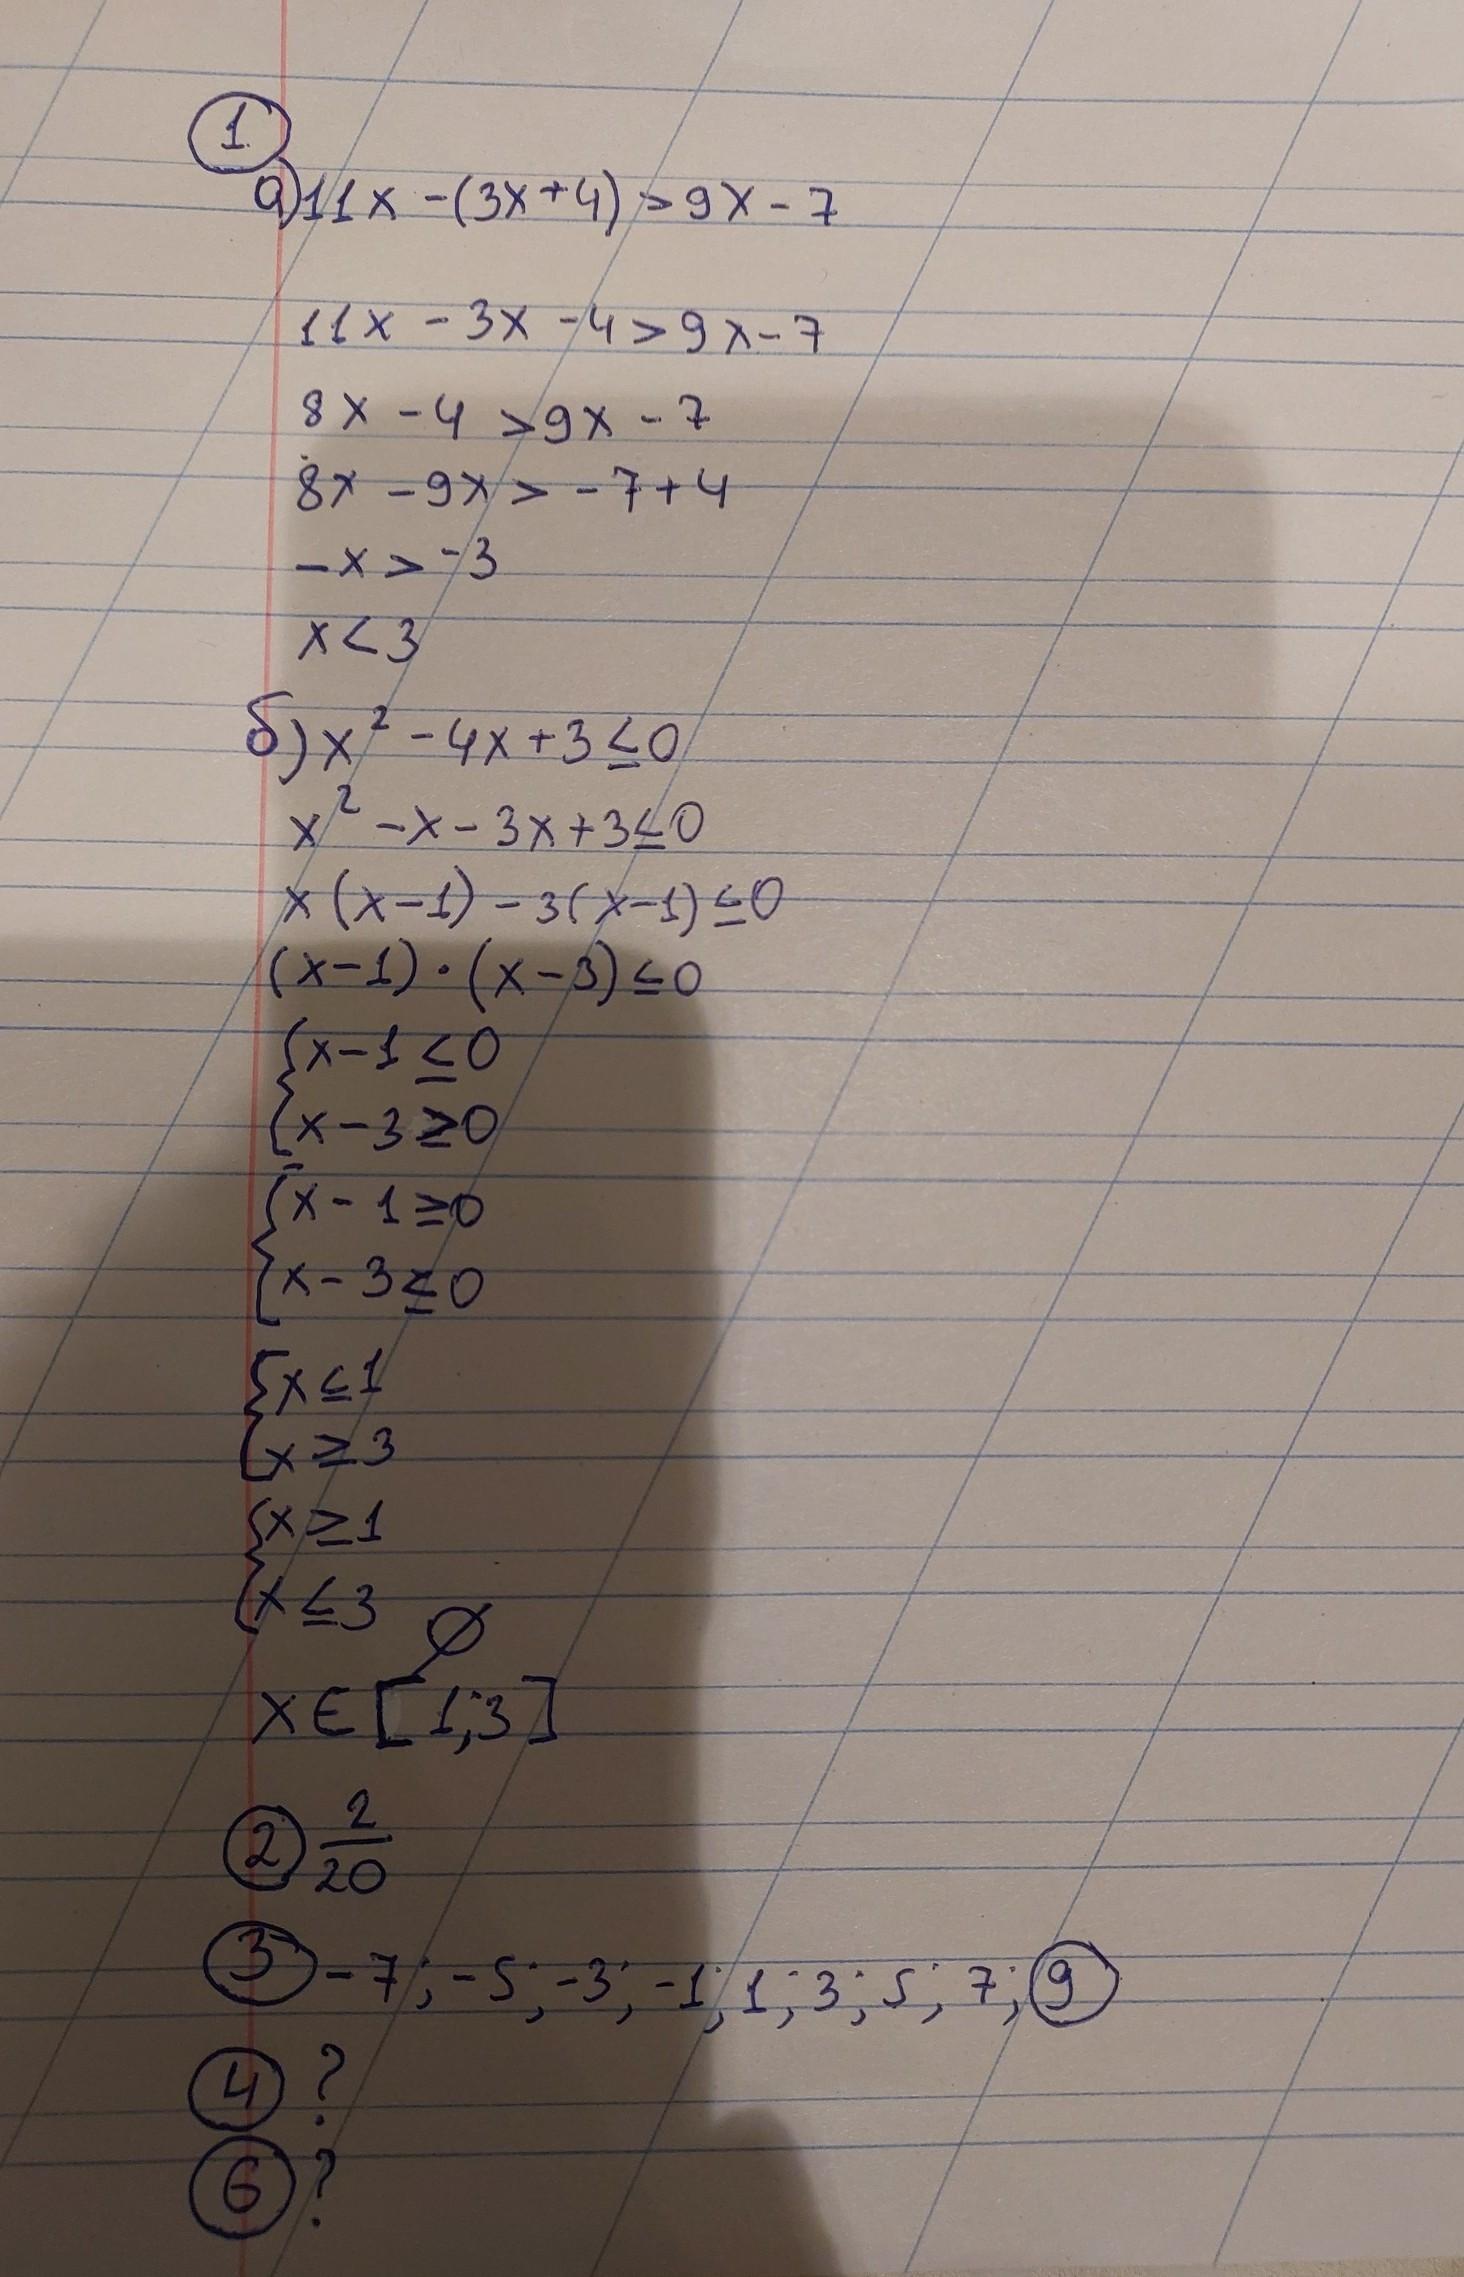 1
а) 11x - (3x + 4) > 9x - 7
11x - 3x - 4 > 9x - 7
8x - 4 > 9x - 7
8x - 9x > -7 + 4
-x > -3
x < 3
б) x² - 4x + 3 ≤ 0
x² - x - 3x + 3 ≤ 0
x(x - 1) - 3(x - 1) ≤ 0
(x - 1) · (x - 3) ≤ 0
{ x - 1 ≤ 0
{ x - 3 ≥ 0
{ x - 1 ≥ 0
{ x - 3 ≤ 0
{ x ≤ 1
{ x ≥ 3
{ x ≥ 1
{ x ≤ 3
∅
x ∈ [1; 3]
2 2/20
3 -7; -5; -3; -1; 1; 3; 5; 7; 9
4 ?
6 ?